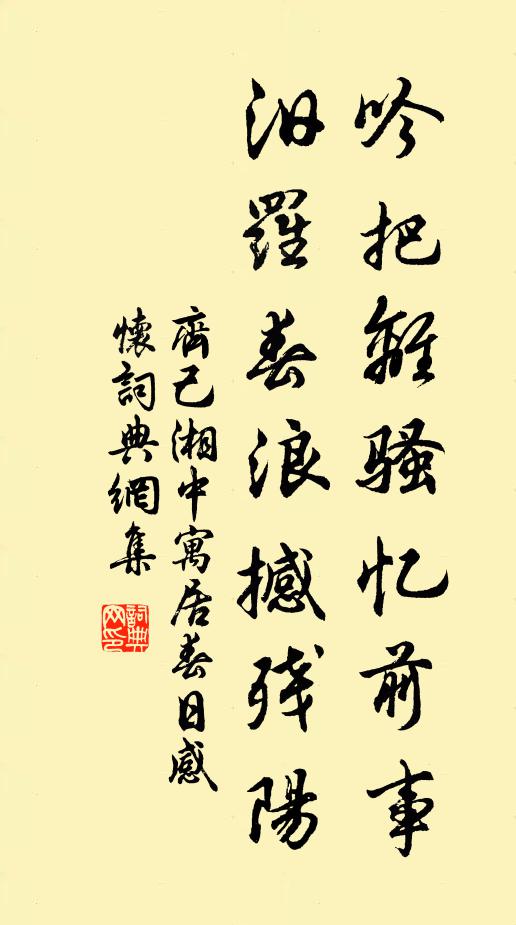 吟把離騷忆前事
汨羅春浪撼残陽
齊己湘中寓居春日感
懷詞典網集
詞典网印